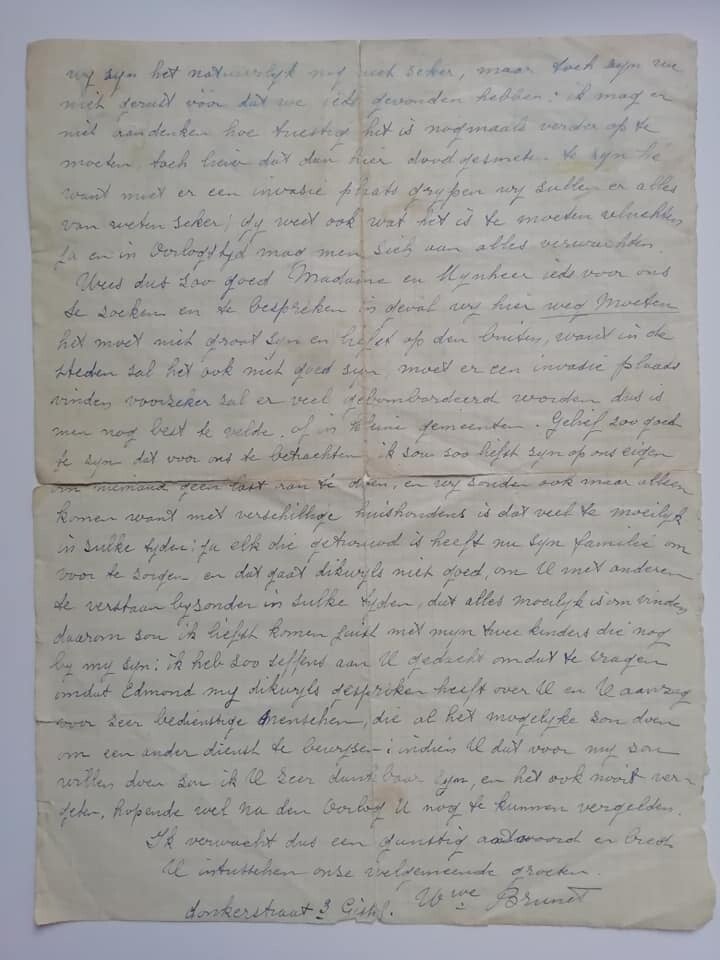 wij sijn het natuurlijk nog niet seker, maar toch sijn we
niet gerust vóór dat we ieds gevonden hebben: ik mag er
niet aan denken hoe triestig het is nogmaals verder op te
moeten, toch liever dat dan hier dood gesmeten te sijn hé
want moet er een invasie plaats grijpen wij sullen er alles
van weten seker; gij weet ook wat het is te moeten vluchten
ja en in Oorlogstijd mag men sich van alles verwachten.
Wees dus soo goed Madame en Mynheer ieds voor ons
te soeken en te bespreken in deval wij hier weg Moeten
het moet niet groot sijn en liefst op den buiten, want in de
steden sal het ook niet goed sijn, moet er een invasie plaads
vinden voorzeker sal er veel gebombardeerd worden dus is
men nog best te velde, of in kleine gemeenten. Gelief soo goed
te sijn dat voor ons te betrachten ik sou soo liefst sijn op ons eigen
om niemand geen last aan te doen, en wij souden ook maar alleen
komen want met verschillige huishoudens is dat veel te moeilijk
in sulke tijden; ja elk die getrouwd is heeft nu sijn familie om
voor te sorgen en dat gaat dikwijls niet goed, om U met anderen
te verstaan bijsonder in sulke tijden, dat alles moeilijk is om vinden
daarom sou ik liefst komen juist met mijn twee kinders die nog
bij mij sijn: ik heb soo seffens aan U gedacht om dat te vragen
omdat Edmond mij dikwijls gespriken heeft over U en U aanzag
voor seer bedienstige Menschen, die al het mogelijke sou doen
om een ander dienst te bewijsen; indien U dat voor mij sou
willen doen sou ik U seer dankbaar sijn, en het ook nooit ver=
geten, hopende wel na den Oorlog U nog te kunnen vergelden.
Ik verwacht dus een gunstig antwoord en bied
U intusschen onse welgemeende groeten.
Wwe Brunet
donkerstraat 3 Gistel.